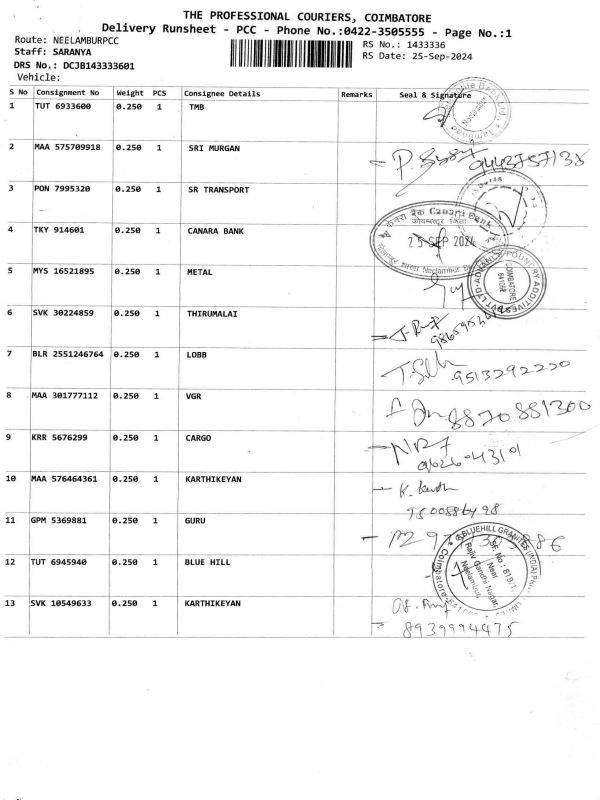 THE PROFESSIONAL COURIERS, COIMBATORE
Delivery Runsheet - PCC - Phone No.:0422-3505555 - Page No.:1
Route: NEELAMBURPCC
Staff: SARANYA
DRS No.: DCJB143333601
Vehicle:
RS No.: 1433336
RS Date: 25-Sep-2024
S No Consignment No Weight PCS Consignee Details Remarks Seal & Signature
1 TUT 6933600 0.250 1 TMB
2 MAA 575709918 0.250 1 SRI MURGAN
3 PON 7995320 0.250 1 SR TRANSPORT
4 TKY 914601 0.250 1 CANARA BANK
केनरा बैंक Canara Bank
25 SEP 2024
Neelambur
5 MYS 16521895 0.250 1 METAL
FOUNDRY ADDITIVES
COIMBATORE
6 SVK 30224859 0.250 1 THIRUMALAI
7 BLR 2551246764 0.250 1 LOBB
9513292220
8 MAA 301777112 0.250 1 VGR
8870881300
9 KRR 5676299 0.250 1 CARGO
9626043101
10 MAA 576464361 0.250 1 KARTHIKEYAN
11 GPM 5369881 0.250 1 GURU
12 TUT 6945940 0.250 1 BLUE HILL
BLUEHILL GRANITES (INDIA)
S.F. No: 819/1,
Near
Rajiv Gandhi Nagar,
Neelambur,
Coimbatore
13 SVK 10549633 0.250 1 KARTHIKEYAN
8939994475